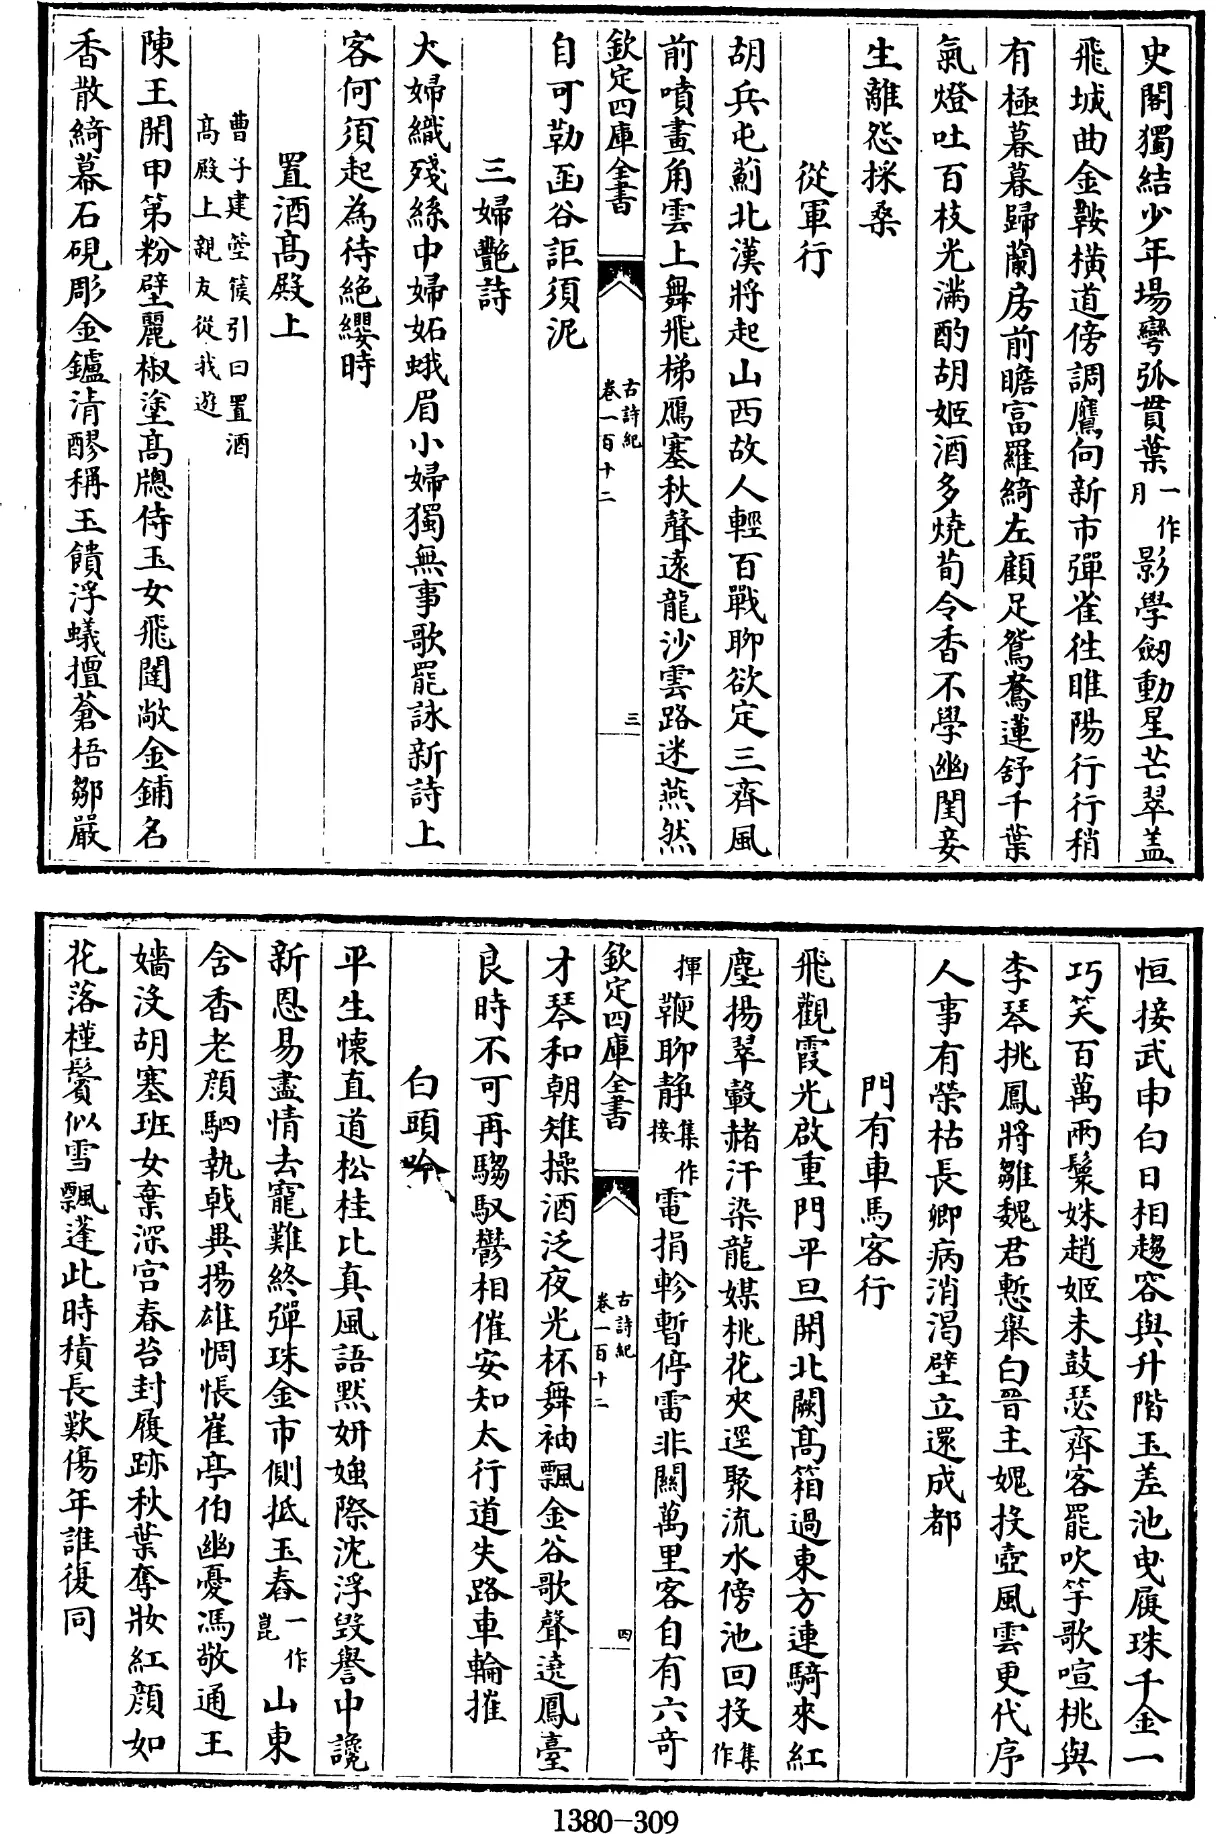 史閣獨結少年場彎弧貫葉一作月影學劒動星芒翠盖
飛城曲金鞍橫道傍調鷹向新市彈雀徃睢陽行行稍
有極暮暮歸蘭房前瞻富羅綺左顧足鴛鴦蓮舒千葉
氣燈吐百枝光滿酌胡姬酒多燒荀令香不學幽閨妾
生離怨採桑
從軍行
胡兵屯薊北漢將起山西故人輕百戰聊欲定三齊風
前噴畫角雲上舞飛梯鴈塞秋聲遠龍沙雲路迷燕然
欽定四庫全書
古詩紀
卷一百十二
三
自可勒函谷詎須泥
三婦艷詩
大婦織殘絲中婦妬蛾眉小婦獨無事歌罷詠新詩上
客何須起為待絶纓時
置酒髙殿上
曹子建箜篌引曰置酒
髙殿上親友從我遊
陳王開甲第粉壁麗椒塗髙牕侍玉女飛闥敞金鋪名
香散綺幕石硯彫金鑪清醪稱玉饋浮蟻擅蒼梧鄒嚴
恒接武申白日相趨容與升階玉差池曳履珠千金一
巧笑百萬兩鬟姝趙姬未鼓瑟齊客罷吹竽歌喧桃與
李琴挑鳳將雛魏君慙舉白晉主媿投壺風雲更代序
人事有榮枯長卿病消渴壁立還成都
門有車馬客行
飛觀霞光啟重門平旦開北闕髙箱過東方連騎來紅
塵揚翠轂赭汗染龍媒桃花夾逕聚流水傍池回投集作
揮鞭聊静集作接電捐軫暫停雷非關萬里客自有六竒
欽定四庫全書
古詩紀
卷一百十二
四
才琴和朝雉操酒泛夜光杯舞袖飄金谷歌聲遶鳳臺
良時不可再騶馭鬱相催安知太行道失路車輪摧
白頭吟
平生懷直道松桂比真風語黙妍媸際沈浮毀譽中讒
新恩易盡情去寵難終彈珠金市側抵玉舂一作崑山東
含香老顔駟執戟異揚雄惆悵崔亭伯幽憂馮敬通王
嬙没胡塞班女棄深宫春苔封履跡秋葉奪妝紅顔如
花落槿鬢似雪飄蓬此時積長歎傷年誰復同
1380-309